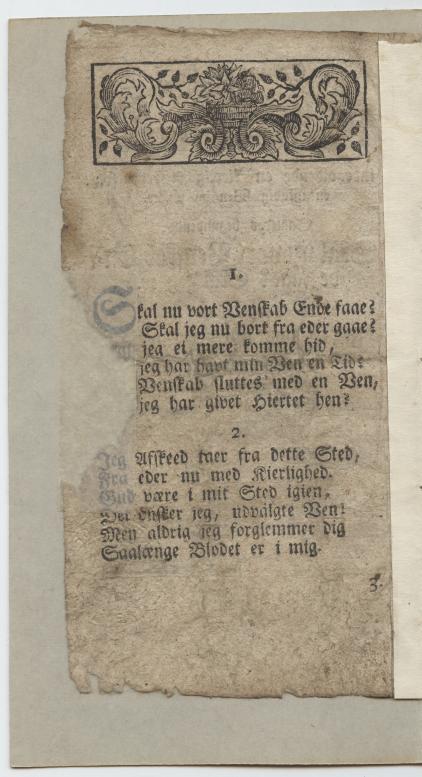 1.
Skal nu vort Venskab Ende faae?
Skal jeg nu bort fra eder gaae?
jeg ei mere komme hid,
jeg har havt min Ven en Tid?
Venskab sluttes med en Ven,
jeg har givet Hiertet hen?
2.
Jeg Afskeed taer fra dette Sted,
Fra eder nu med Kierlighed.
Gud være i mit Sted igien,
Det ønsker jeg, udvalgte Ven!
Men aldrig jeg forglemmer dig
Saalænge Blodet er i mig.
3.